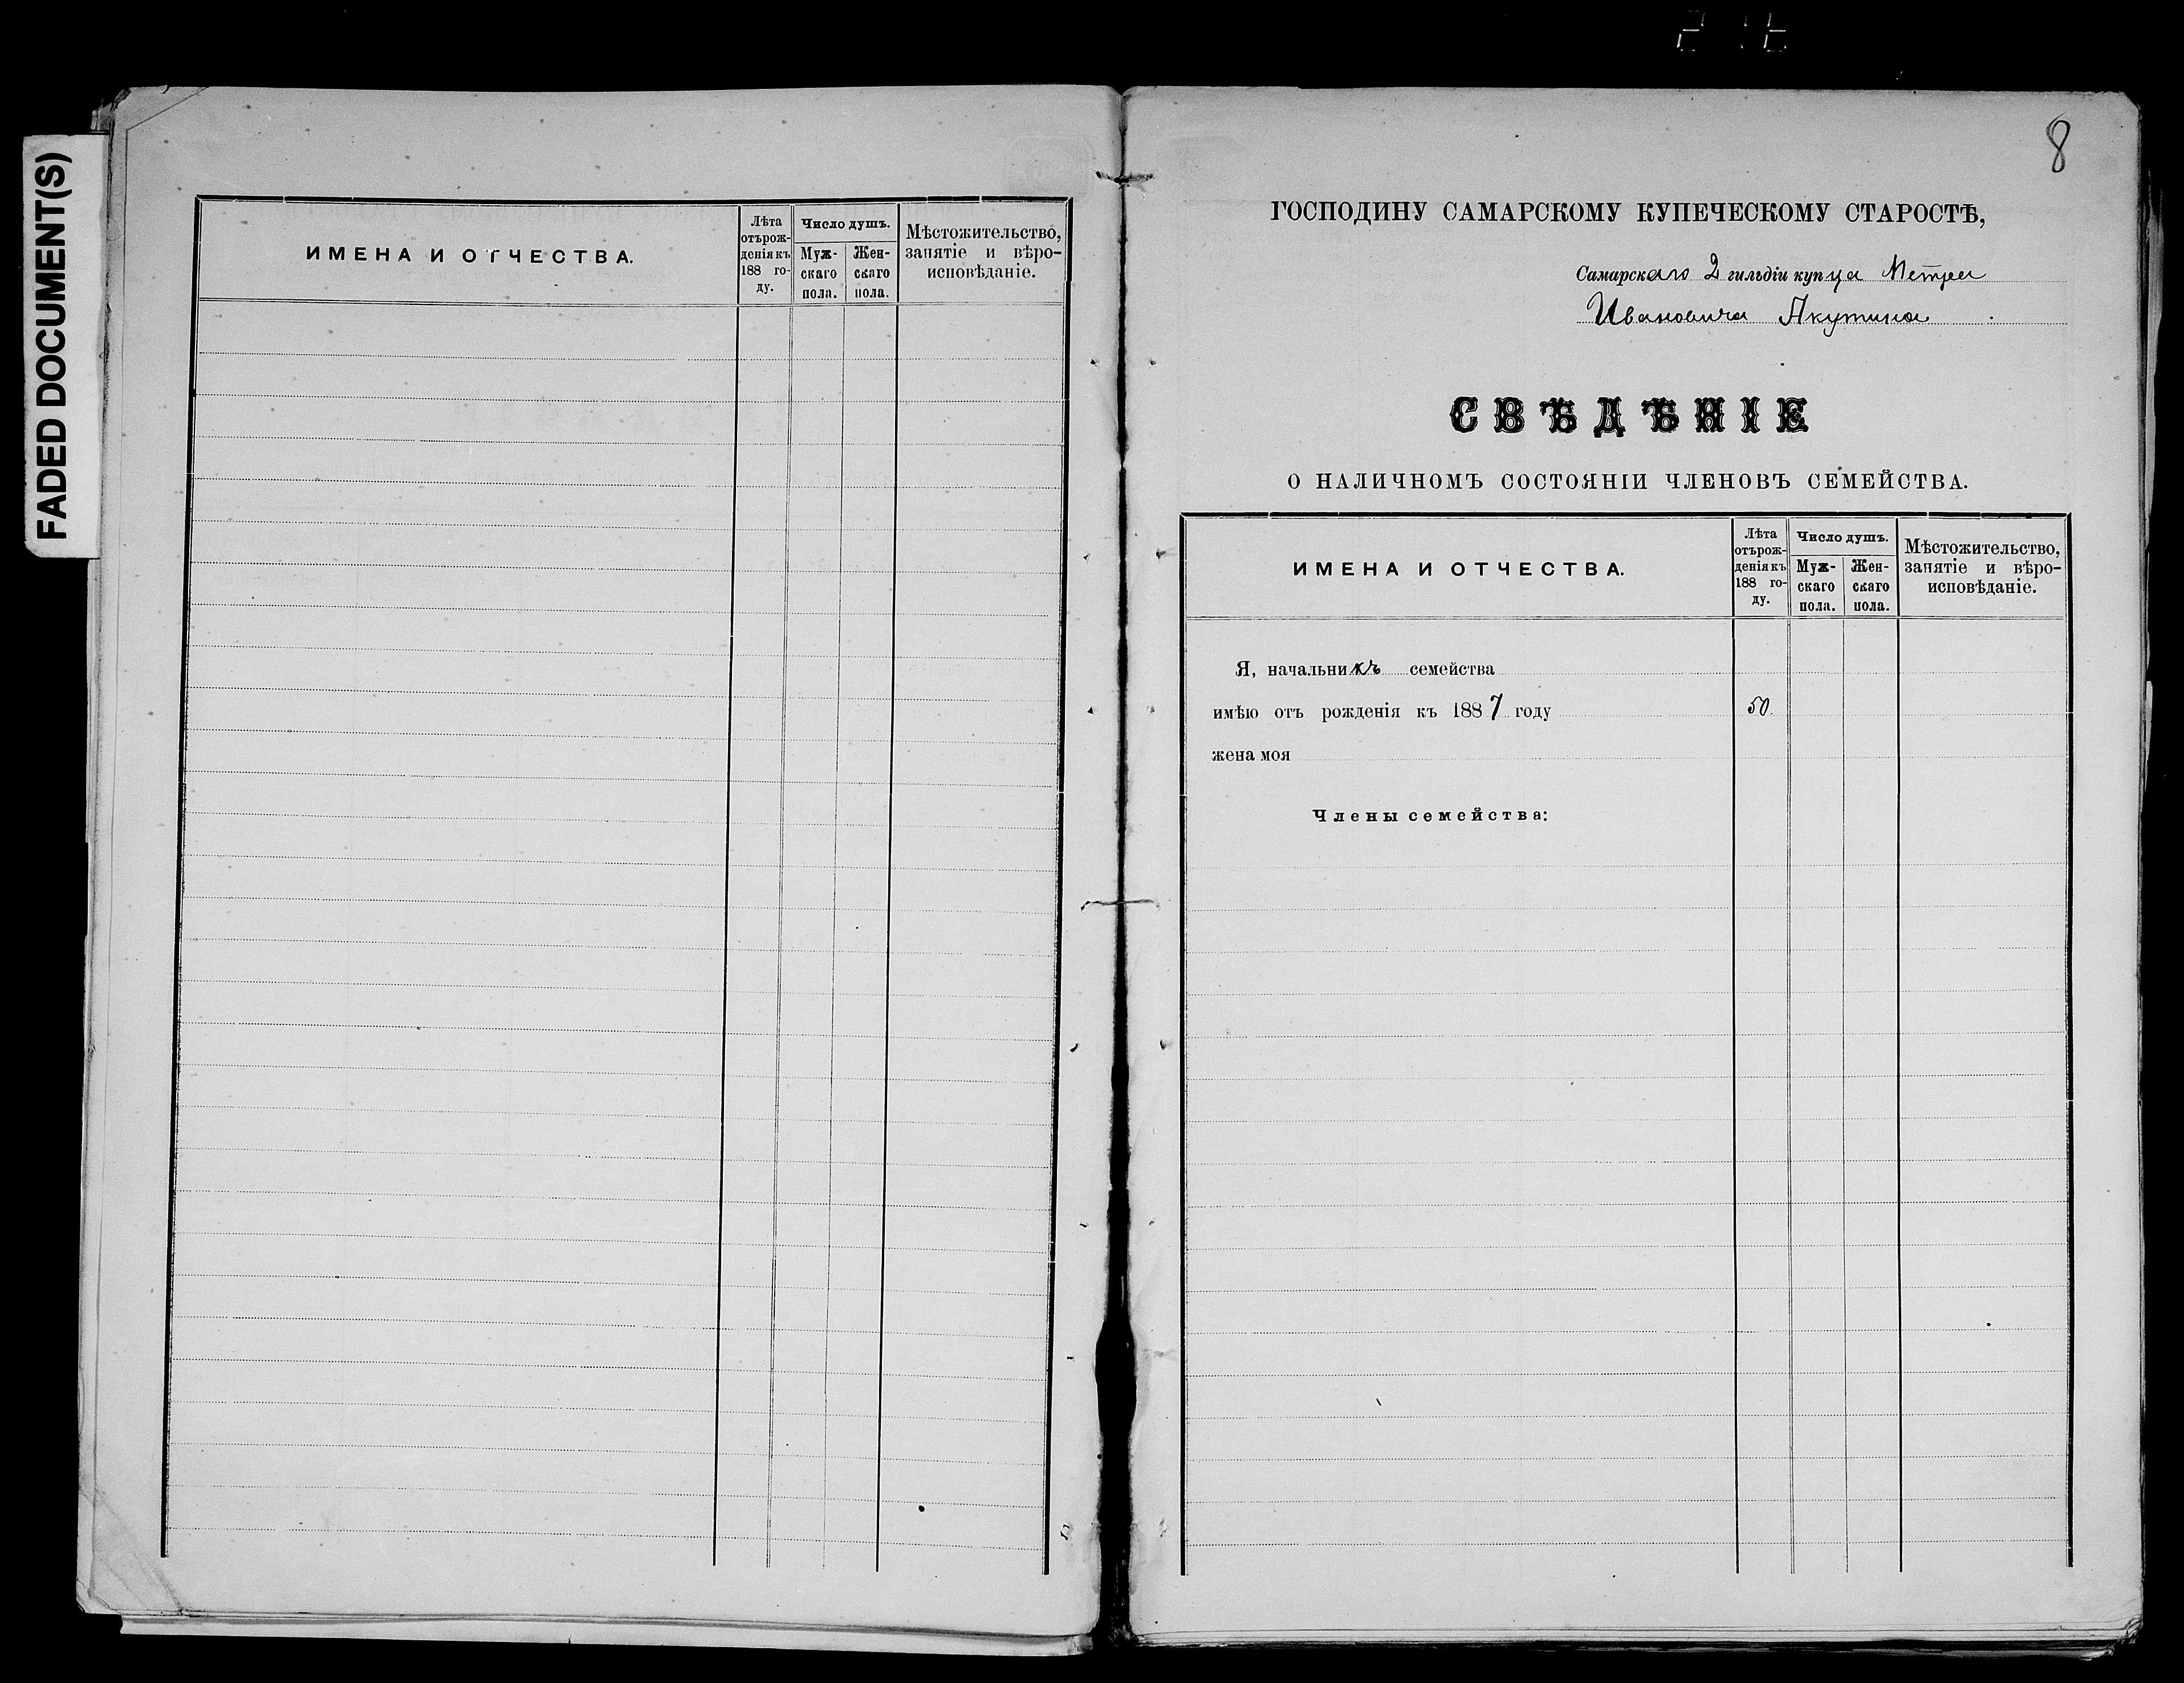 FADED DOCUMENT(S)
ИМЕНА И ОТЧЕСТВА.
Лѣта
отърож-
денія къ
188 го-
ду.
Число душъ.
Муж-
скаго
пола.
Жен-
скаго
пола.
Мѣстожительство,
занятіе и вѣро-
исповѣданіе.
8
ГОСПОДИНУ САМАРСКОМУ КУПЕЧЕСКОМУ СТАРОСТѢ,
Самарскаго 2 гильдіи купца Петра
Ивановича Якутина
СВѢДѢНІЕ
О НАЛИЧНОМЪ СОСТОЯНІИ ЧЛЕНОВЪ СЕМЕЙСТВА.
ИМЕНА И ОТЧЕСТВА.
Лѣта
отърож-
денія къ
188 го-
ду.
Число душъ.
Муж-
скаго
пола.
Жен-
скаго
пола.
Мѣстожительство,
занятіе и вѣро-
исповѣданіе.
Я, начальникъ семейства
имѣю отъ рожденія къ 1887 году 50
жена моя
Члены семейства: